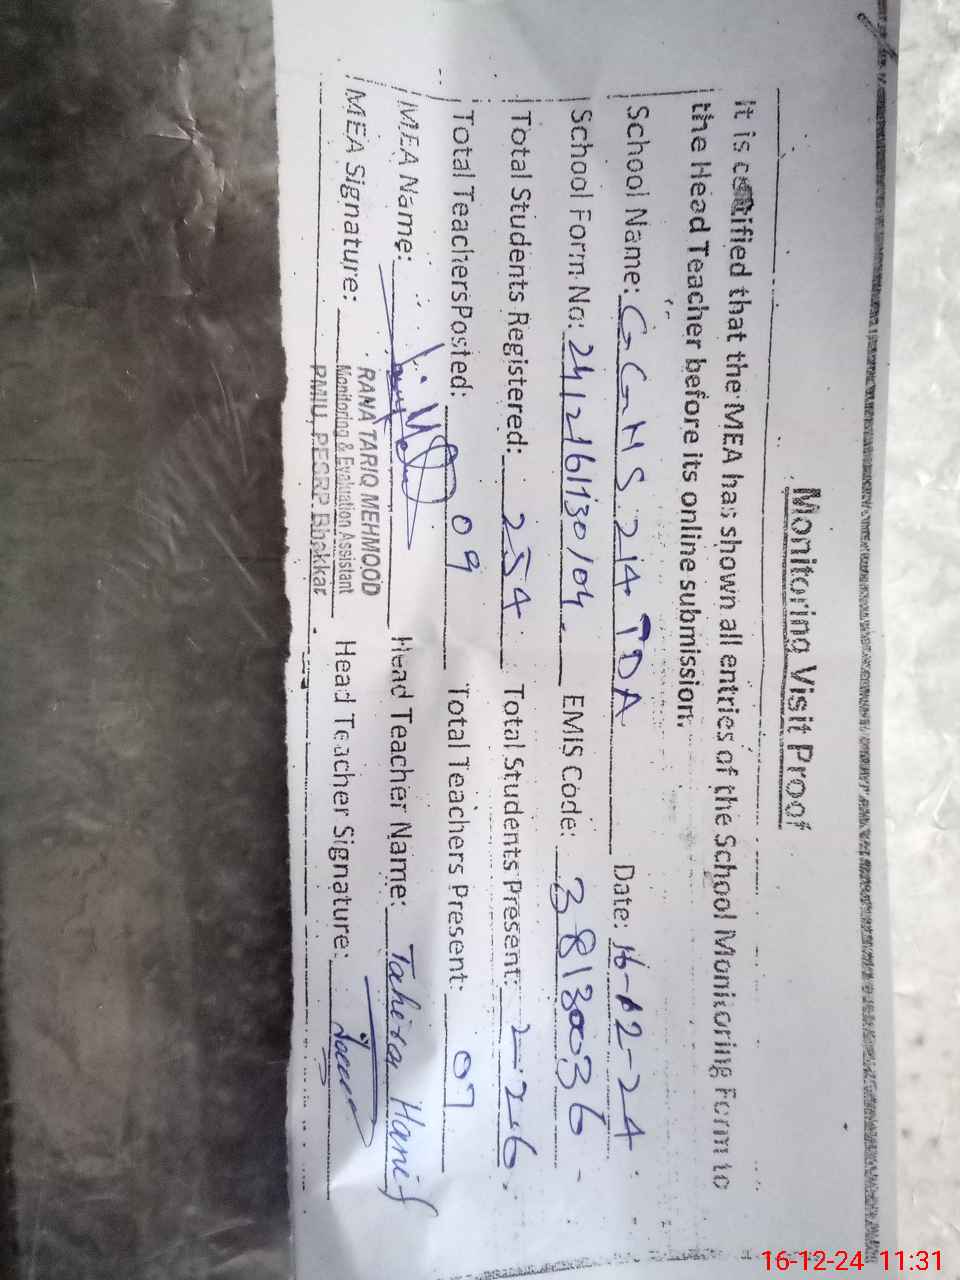 Monitoring Visit Proof
It is certified that the MEA has shown all entries of the School Monitoring Form to
the Head Teacher before its online submission.
School Name: GGHS 214 TDA Date: 16-12-24
School Form No: 2412161130104 EMIS Code: 38130036
Total Students Registered: 254 Total Students Present: 226
Total Teachers Posted: 09 Total Teachers Present: 07
MEA Name: Head Teacher Name: Tahira Hanif
RANA TARIQ MEHMOOD
MEA Signature: Monitoring & Evaluation Assistant Head Teacher Signature:
PMIU, PESRP Bhakkar
16-12-24 11:31